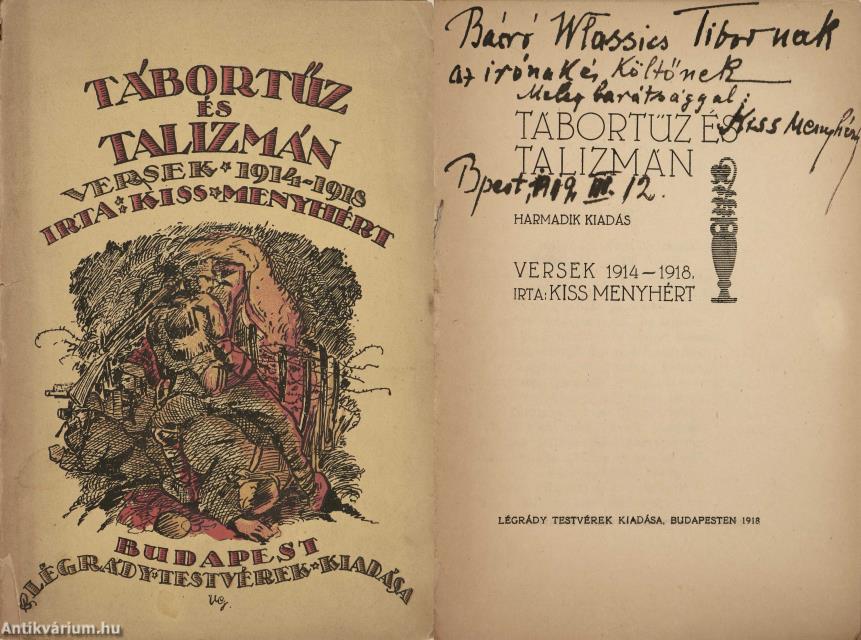 TÁBORTŰZ
ÉS
TALIZMÁN
VERSEK * 1914-1918
IRTA: KISS * MENYHÉRT
BUDAPEST
LÉGRÁDY * TESTVÉREK * KIADÁSA
Báró Wlassics Tibornak
az irónak és költőnek
Meleg barátsággal:
Kiss Menyhért
TÁBORTŰZ ÉS
TALIZMÁN
Bpest, 1919. III. 12.
HARMADIK KIADÁS
VERSEK 1914—1918.
IRTA: KISS MENYHÉRT
LÉGRÁDY TESTVÉREK KIADÁSA, BUDAPESTEN 1918
Antikvárium.hu